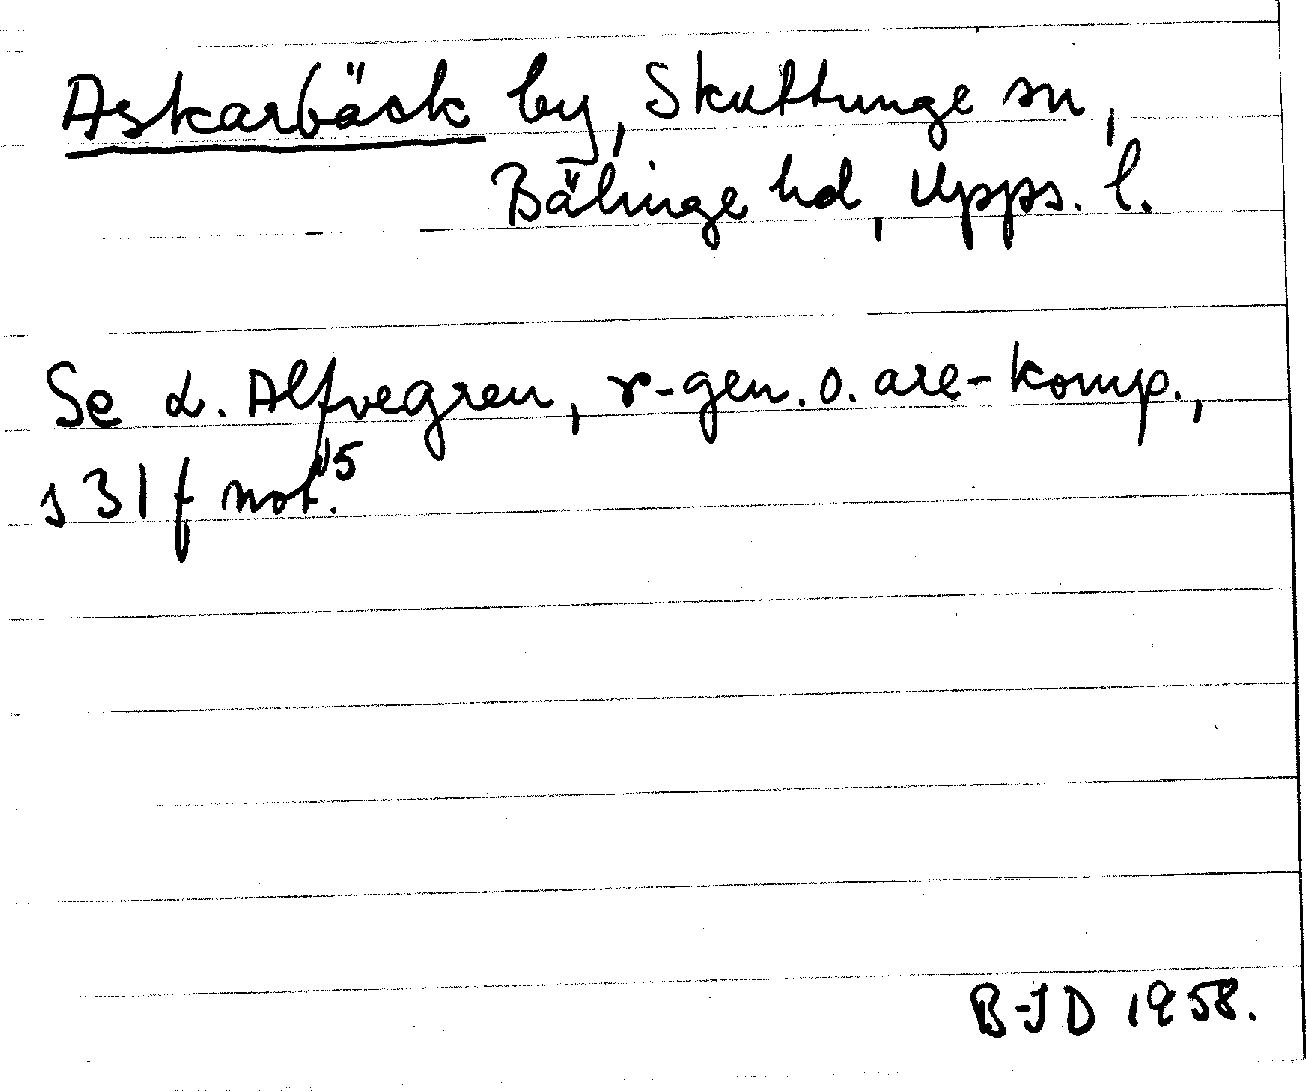 Askarbäck by, Skuttunge sn,
Bälinge hd, Upps. l.
Se L. Alfvegren, r-gen. o. are-komp.,
s 31 f not.15
B-JD 1958.